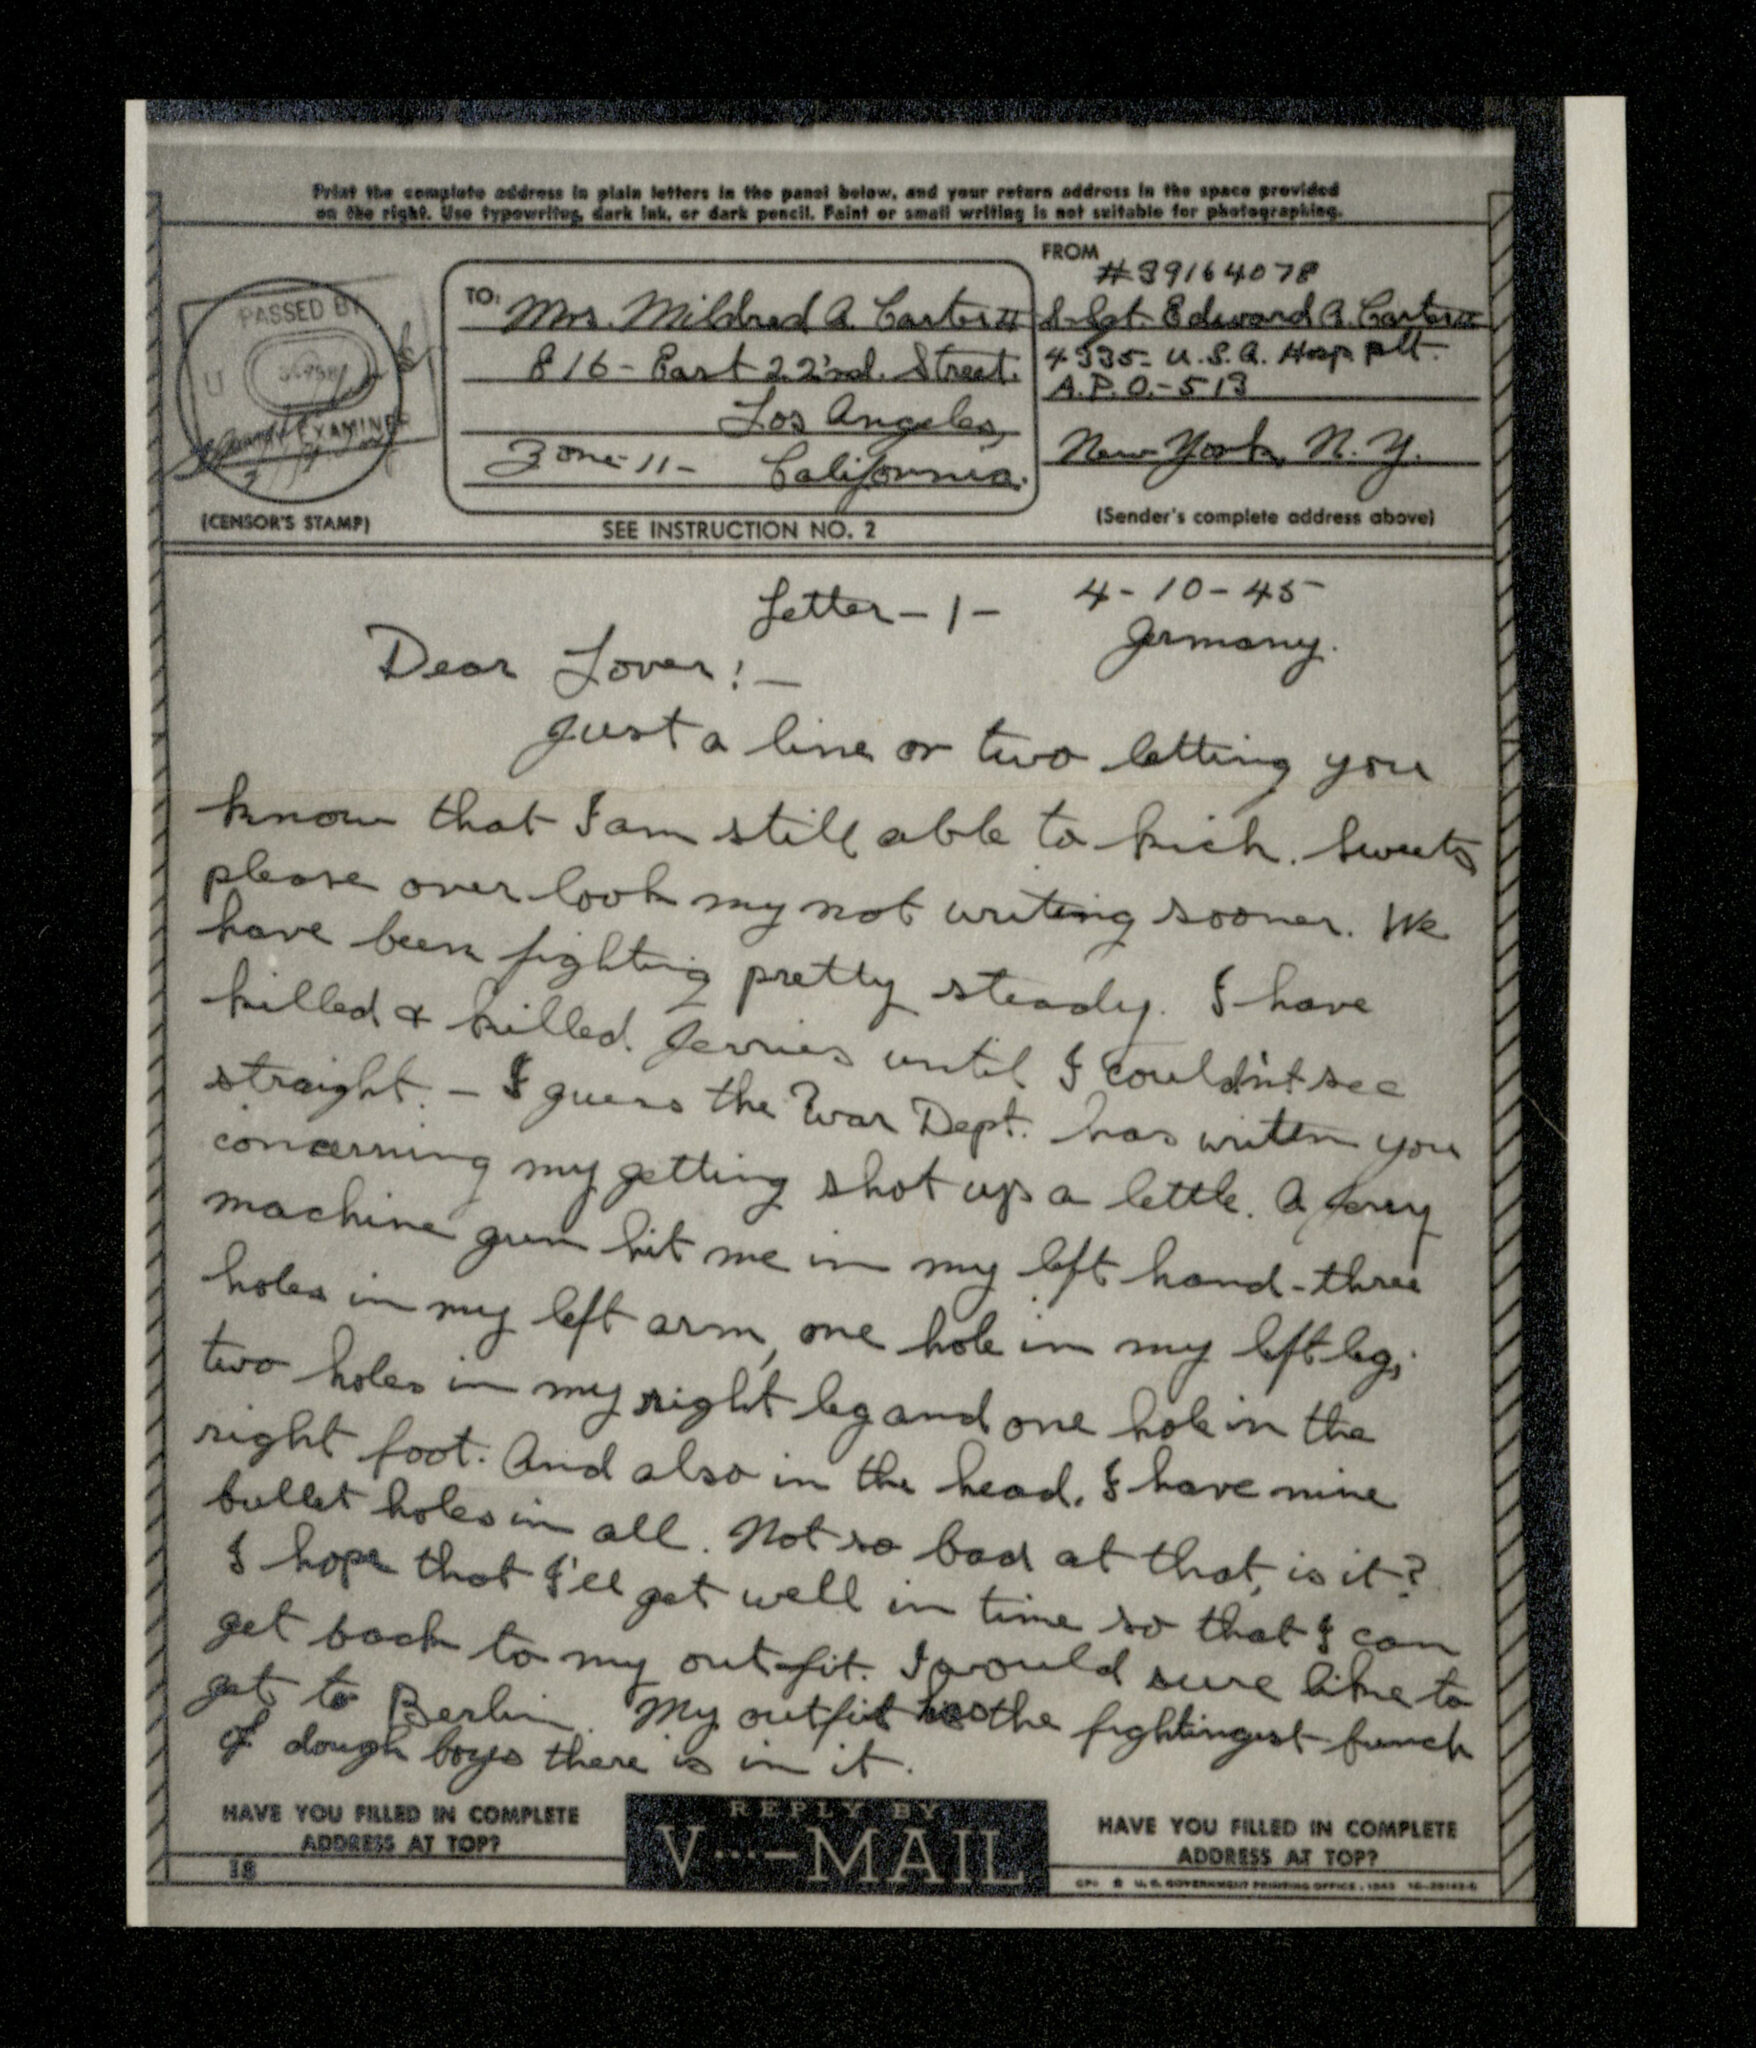 Print the complete address in plain letters in the panel below, and your return address in the space provided
on the right. Use typewriting, dark ink, or dark pencil. Faint or small writing is not suitable for photographing.
PASSED BY
U
EXAMINER
(CENSOR'S STAMP)
TO:
Mrs. Mildred A. Carter II
816 - East 22'nd. Street.
Los Angeles,
Zone-11- California.
SEE INSTRUCTION NO. 2
FROM
#39164078
S-Sgt. Edward A. Carter II
4335- U.S.A. Hosp. Plt.
A.P.O.-513
New York, N.Y.
(Sender's complete address above)
Letter -1- 4-10-45
Germany.
Dear Lover!-
Just a line or two letting you
know that I am still able to kick. Sweets
please over look my not writing sooner. We
have been fighting pretty steady. I have
killed & killed Jerries until I couldn't see
straight. - I guess the War Dept. has written you
concerning my getting shot up a little. A Jerry
machine gun hit me in my left hand - three
holes in my left arm, one hole in my left leg,
two holes in my right leg and one hole in the
right foot. And also in the head. I have nine
bullet holes in all. Not so bad at that, is it?
I hope that I'll get well in time so that I can
get back to my outfit. I would sure like to
get to Berlin. My outfit has the fightingest bunch
of dough boys there is in it.
HAVE YOU FILLED IN COMPLETE
ADDRESS AT TOP?
REPLY BY
V···—MAIL
HAVE YOU FILLED IN COMPLETE
ADDRESS AT TOP?
18
U. S. GOVERNMENT PRINTING OFFICE : 1943